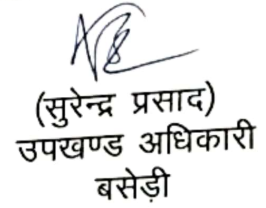 (सुरेन्द्र प्रसाद)
उपखण्ड अधिकारी
बसेड़ी